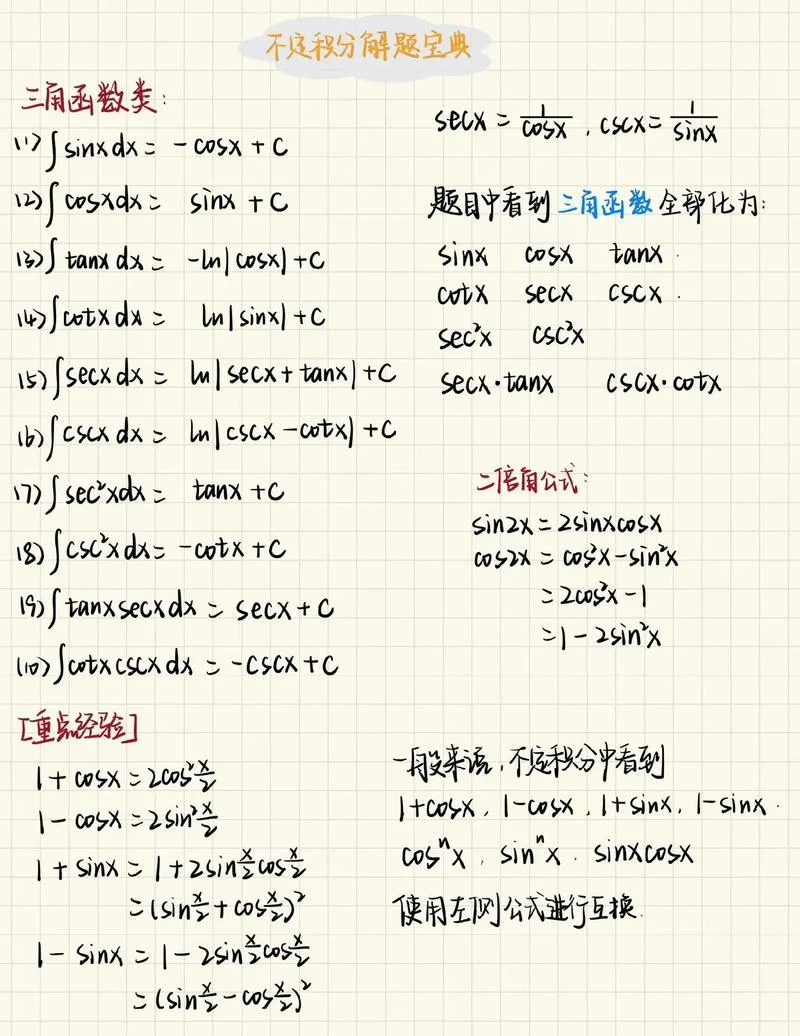 不定积分解题宝典
三角函数类:
(1) ∫sinx dx = -cosx + C
(2) ∫cosx dx = sinx + C
(3) ∫tanx dx = -ln|cosx| + C
(4) ∫cotx dx = ln|sinx| + C
(5) ∫secx dx = ln|secx + tanx| + C
(6) ∫cscx dx = ln|cscx - cotx| + C
(7) ∫sec²x dx = tanx + C
(8) ∫csc²x dx = -cotx + C
(9) ∫tanx secx dx = secx + C
(10) ∫cotx cscx dx = -cscx + C
secx = 1/cosx , cscx = 1/sinx
题目中看到 三角函数 全部化为:
sinx cosx tanx .
cotx secx cscx .
sec²x csc²x
secx·tanx cscx·cotx
二倍角公式:
sin2x = 2sinxcosx
cos2x = cos²x - sin²x
= 2cos²x - 1
= 1 - 2sin²x
[重点经验]
1 + cosx = 2cos²x/2
1 - cosx = 2sin²x/2
1 + sinx = 1 + 2sin x/2 cos x/2
= (sin x/2 + cos x/2)²
1 - sinx = 1 - 2sin x/2 cos x/2
= (sin x/2 - cos x/2)²
一般来说, 不定积分中看到
1+cosx , 1-cosx , 1+sinx , 1-sinx .
cosⁿx , sinⁿx . sinxcosx
使用左侧公式进行互换.